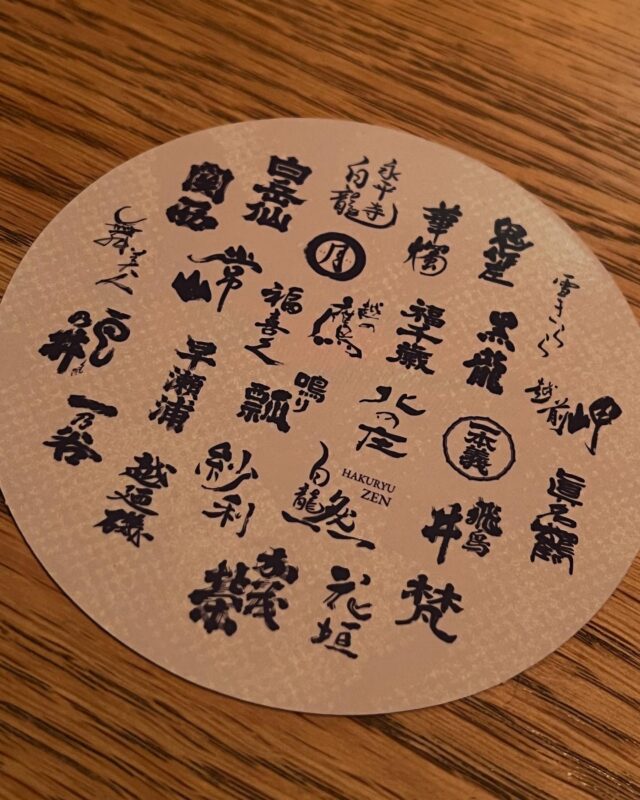 關西
白岳仙
永平寺
白龍
華燭
雪きらら
舞美人
常山
月
越の
鷹
福千歳
黒龍
越前
岬
早瀬浦
鳴り
瓢
北の庄
一本義
眞名鶴
一乃谷
越廼磯
紗利
白龍
然
HAKURYU
ZEN
飛鳥
井
花垣
梵